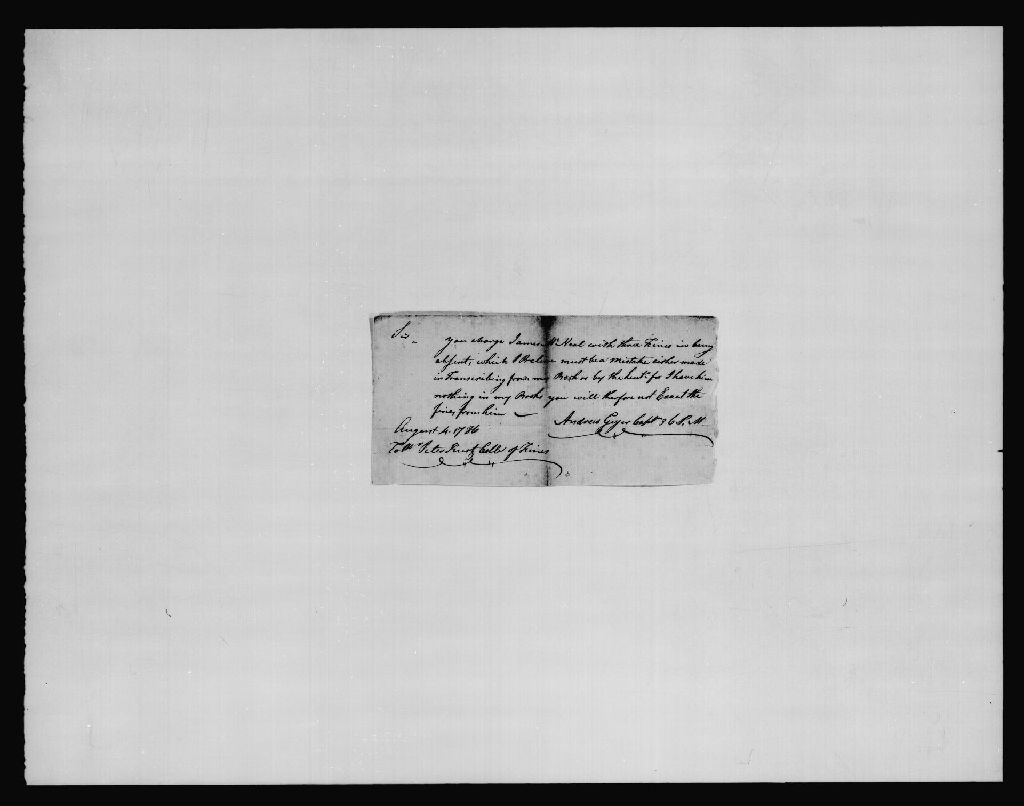 Sir
you charge James McNeal with three Fines in being
absent, which I Believe must be a mistake either made
in Transcribing from my Book or by the Lieut. for I have him
nothing in my Books you will therfore not Exact the
fines from him
Andrew Geyer Capt
August 4. 1786
To Mr Peter Kurtz Collr of Fines